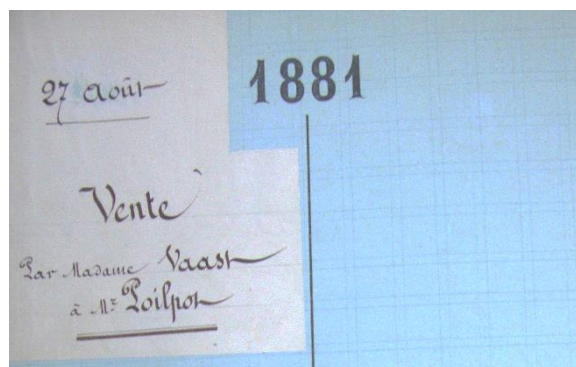 27 Août
1881
Vente
Par Madame Vaast
à Mr Poilpot